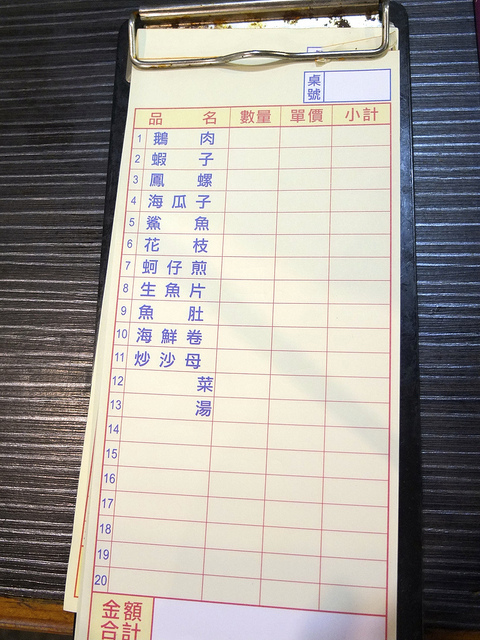 桌號
品名 數量 單價 小計
1 鵝肉
2 蝦子
3 鳳螺
4 海瓜子
5 鯊魚
6 花枝
7 蚵仔煎
8 生魚片
9 魚肚
10 海鮮卷
11 炒沙母
12 菜
13 湯
14
15
16
17
18
19
20
金額
合計